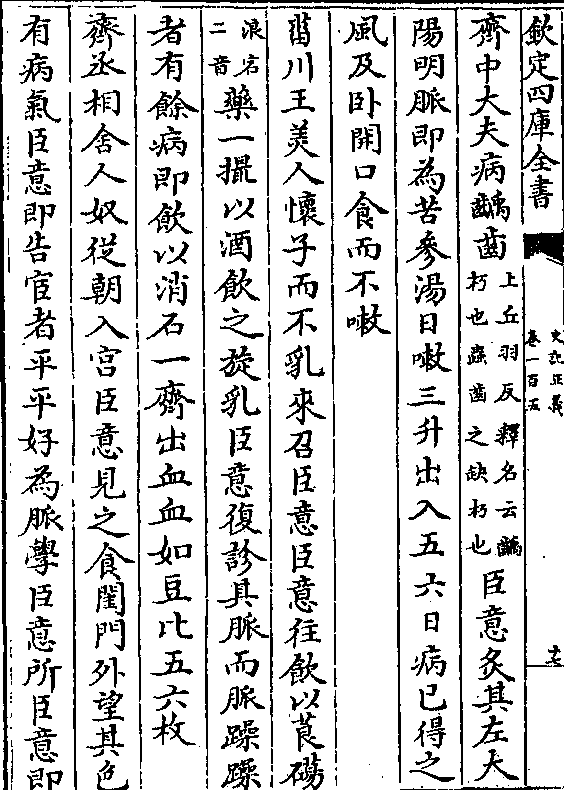 欽定四庫全書
史記正義
卷一百五
十七
齊中大夫病齲齒上丘羽反釋名云齲朽也蟲齒之缺朽也臣意灸其左大
陽明脈即為苦參湯日嗽三升出入五六日病已得之
風及卧開口食而不嗽
菑川王美人懷子而不乳來召臣意臣意往飲以莨
浪宕二音藥一撮以酒飲之旋乳臣意復診其脈而脈躁躁
者有餘病即飲以消石一齊出血血如豆比五六枚
齊丞相舍人奴從朝入宮臣意見之食閨門外望其色
有病氣臣意即告宦者平平好為脈學臣意所臣意即